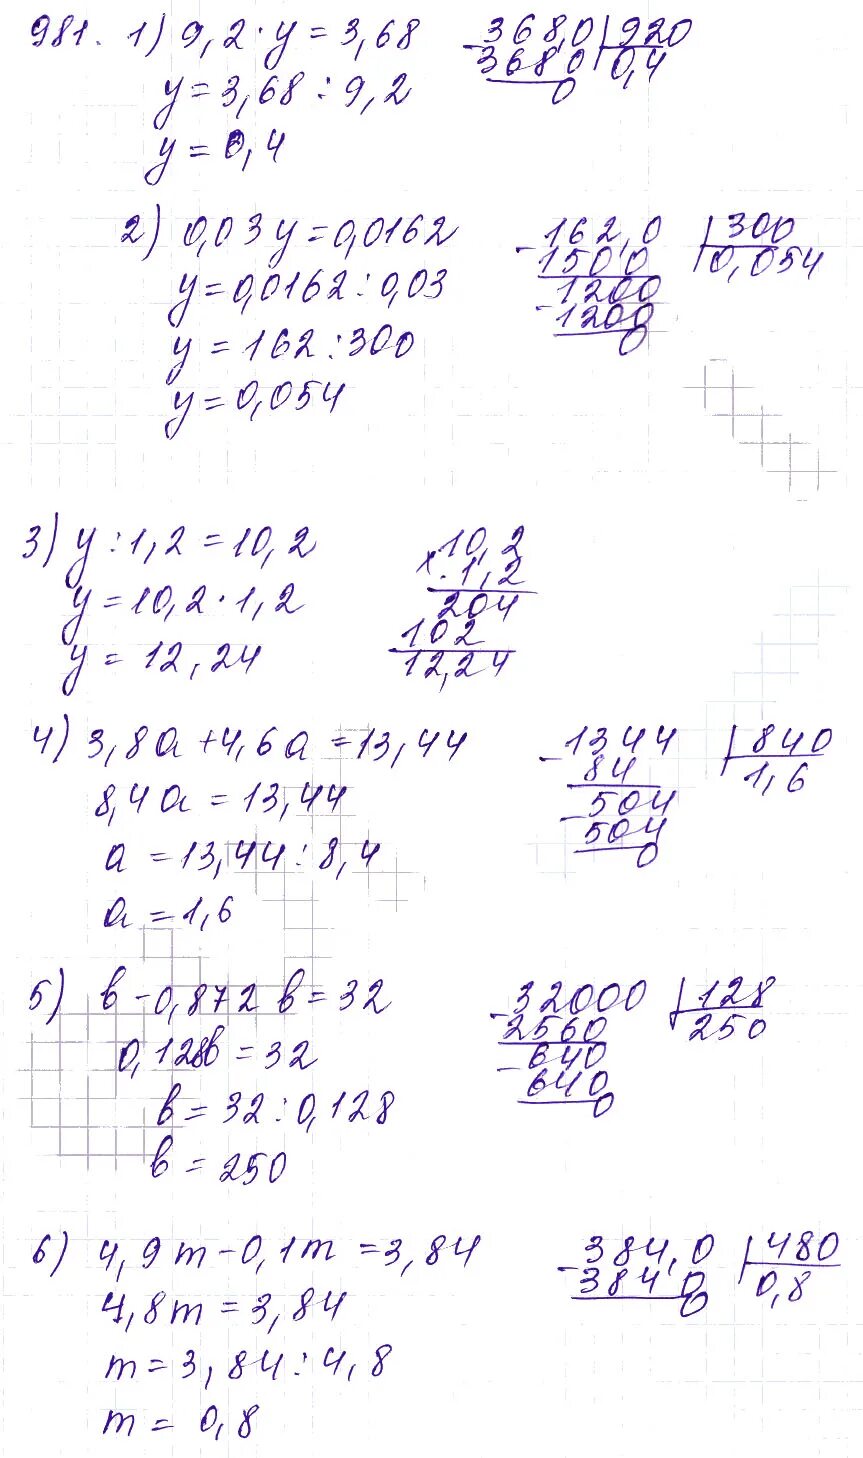 981. 1) 9,2·y = 3,68
y = 3,68 : 9,2
y = 0,4
- 368,0 | 920
368 0 | 0,4
0
2) 0,03y = 0,0162
y = 0,0162 : 0,03
y = 162 : 300
y = 0,054
- 162,0 | 300
1500 | 0,054
1200
- 1200
0
3) y : 1,2 = 10,2
y = 10,2 · 1,2
y = 12,24
10,2
x 1,2
204
102
12,24
4) 3,8a + 4,6a = 13,44
8,4a = 13,44
a = 13,44 : 8,4
a = 1,6
- 1344 | 840
84 | 1,6
- 504
504
0
5) в - 0,872 в = 32
0,128в = 32
в = 32 : 0,128
в = 250
- 32000 | 128
2560 | 250
- 640
640
0
6) 4,9m - 0,1m = 3,84
4,8m = 3,84
m = 3,84 : 4,8
m = 0,8
- 384,0 | 480
384 0 | 0,8
0